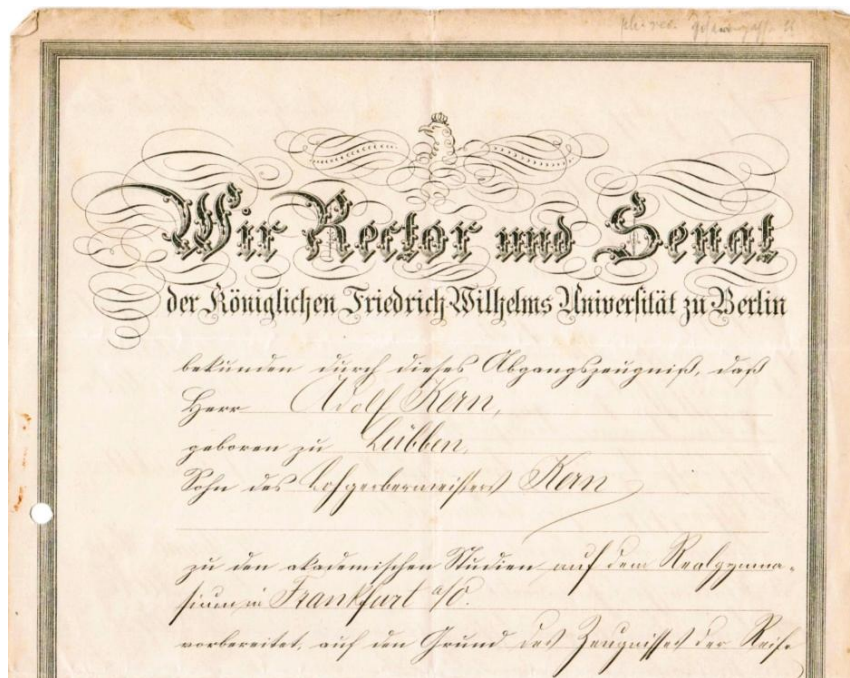 Wir Rector und Senat
der Königlichen Friedrich Wilhelms Universität zu Berlin
bekunden durch dieses Abgangszeugniß, daß
Herr Adolf Kern,
geboren zu Lübben,
Sohn des Lohgerbermeisters Kern
zu den akademischen Studien auf dem Realgymna-
sium in Frankfurt a/O.
vorbereitet, auf den Grund des Zeugnisses der Reife